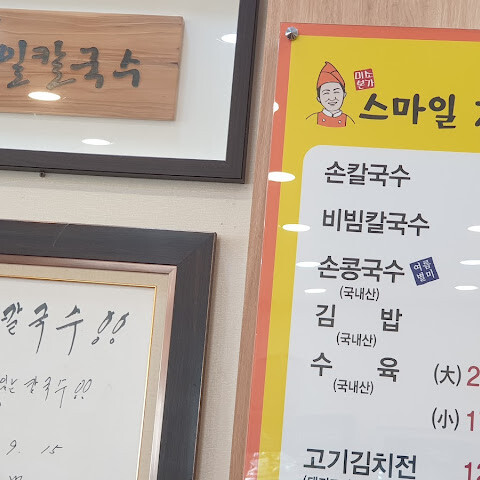 일칼국수
칼국수!!
칼국수!!
9. 15
미소
본가
스마일
손칼국수
비빔칼국수
손콩국수 여름
별미
(국내산)
김 밥
(국내산)
수 육 (大) 2
(국내산)
(小) 1
고기김치전 12